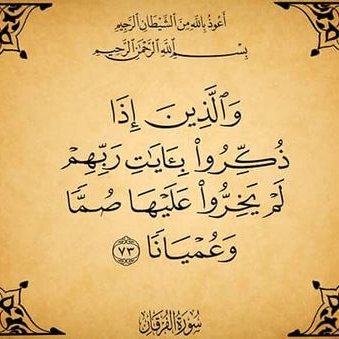 أَعُوذُ بِاللَّهِ مِنَ الشَّيْطَانِ الرَّجِيمِ
بِسْمِ ٱللَّهِ ٱلرَّحْمَٰنِ ٱلرَّحِيمِ
وَٱلَّذِينَ إِذَا
ذُكِّرُوا۟ بِـَٔايَٰتِ رَبِّهِمْ
لَمْ يَخِرُّوا۟ عَلَيْهَا صُمًّا
وَعُمْيَانًا ٧٣
سُورَةُ الفُرْقَانِ